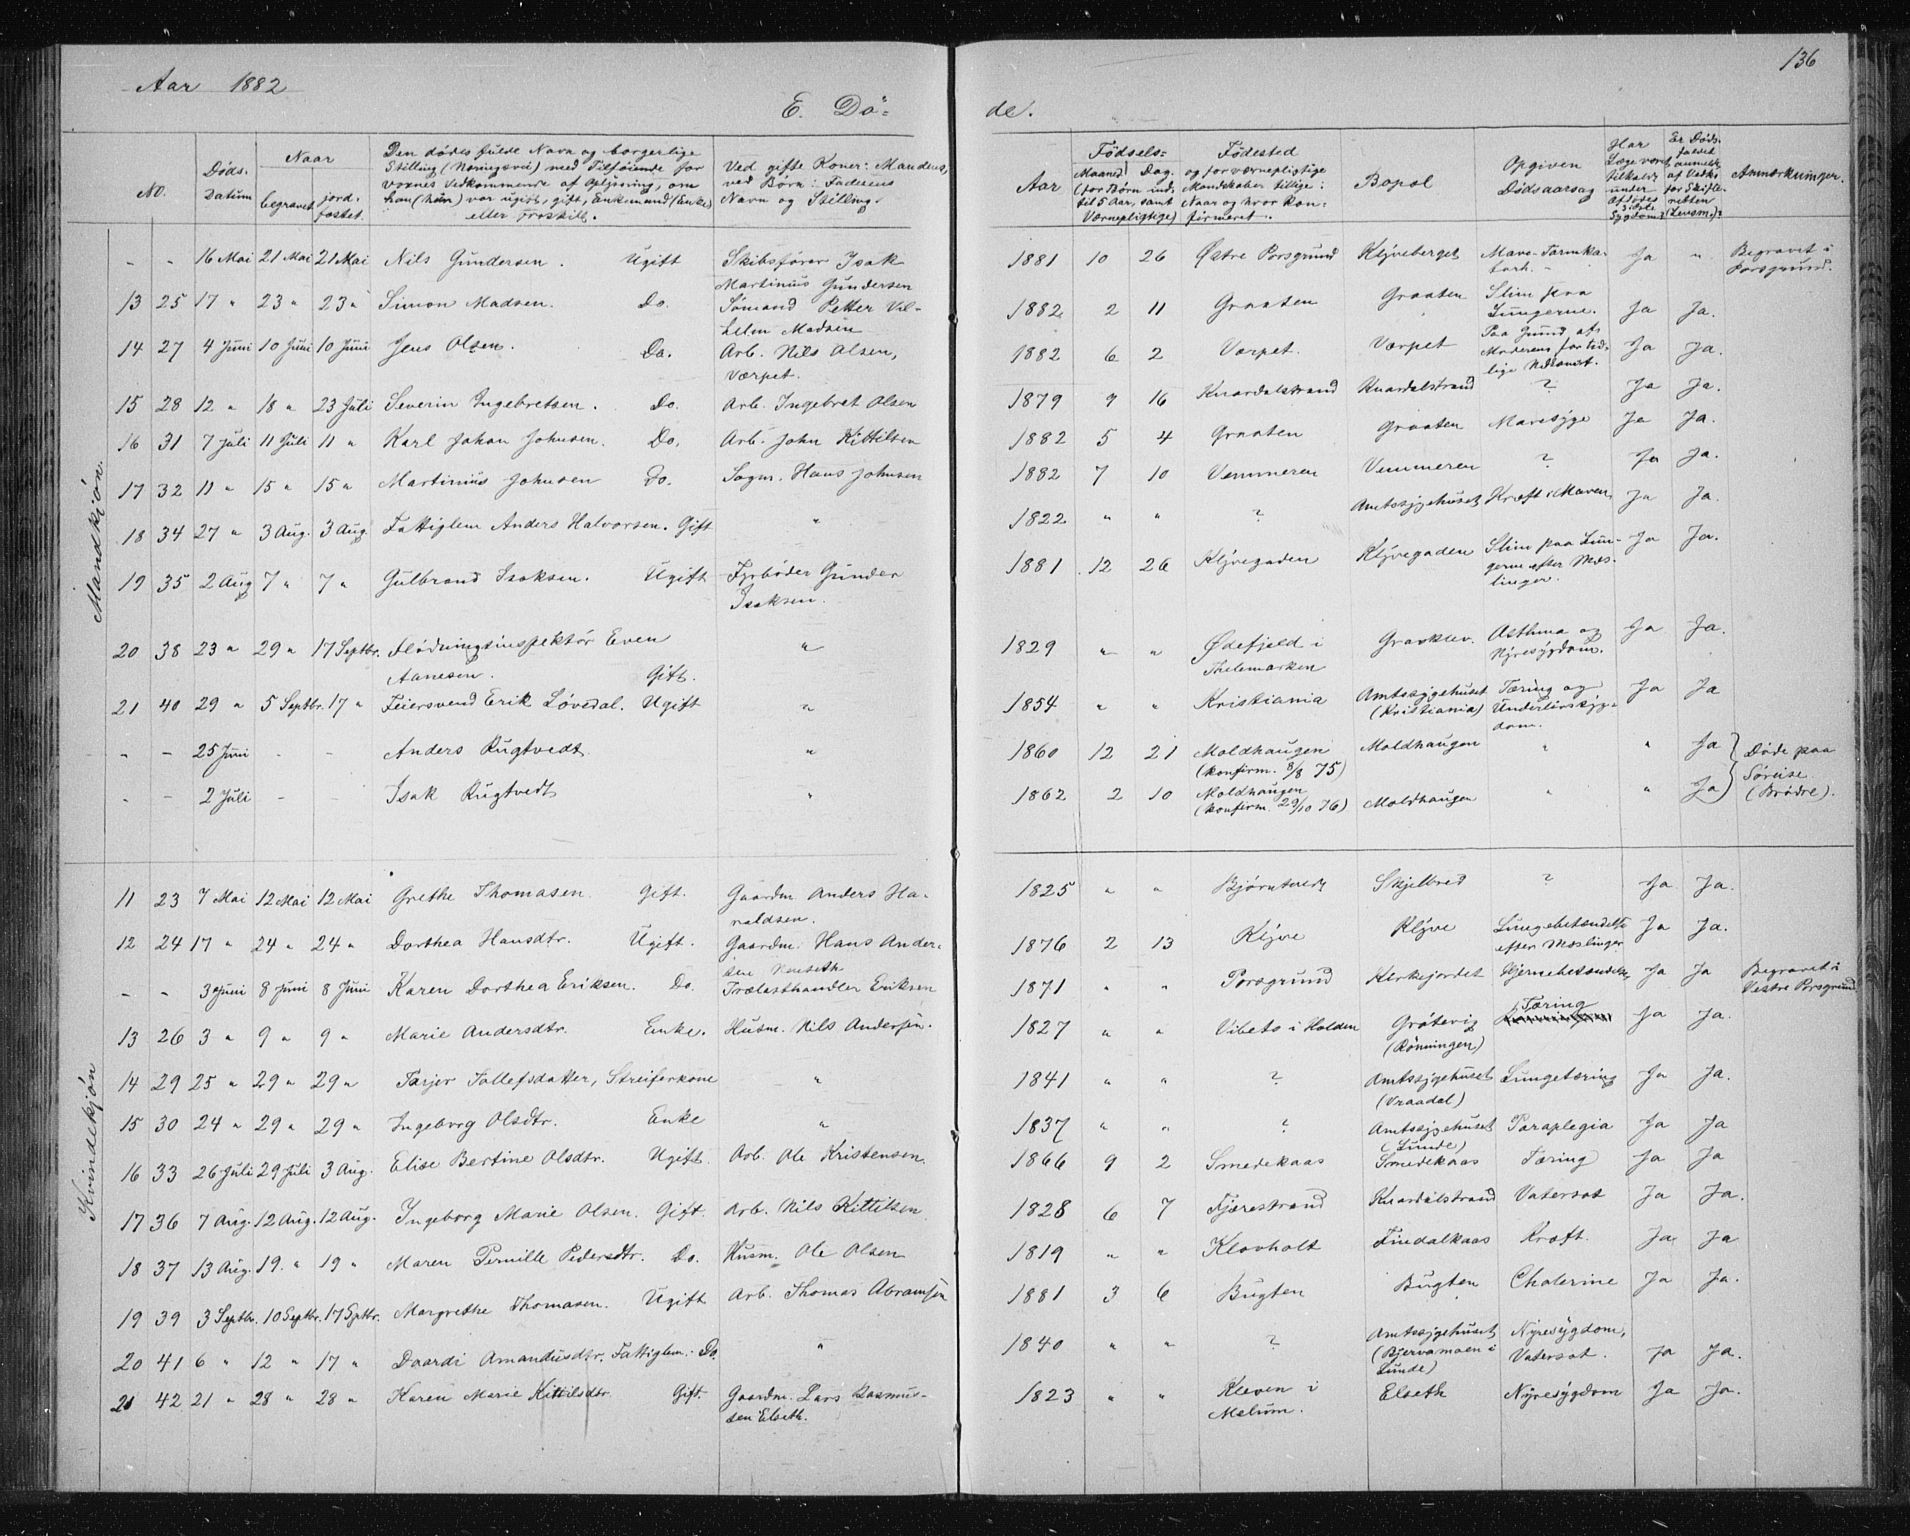 136
Aar 1882
E. Dö=
de.
No. | Döds. Datum | Naar begravet | jord-fæstet. | Den dödes fulde Navn og borgerlige Stilling (Næringsvei) med Tilföiende for vornes Vedkommende af Oplysning, om han (hun) var ugift, gift, Enkemand (Enke) eller Fraskilt. | Ved gifte Koner: Mandens, ved Börn: Faderens Navn og Stilling. | Aar | Födsels= Maaned (for Börn ind. til 5 Aar, samt Værnepligtige) | Dag. | Födested og for værnepligtige Mandskaber tillige: Naar og hvor kon=firmeret. | Bopæl | Opgiven Dödsaarsag | Har Læge været tilkaldt under Afdödes sidste Sygdom? | Er Döds-faldet anmeldt af Vedk. for Skifte-retten (Lensm.)? | Anmærkninger.
Mandkjön.
- | - | 16 Mai | 21 Mai | 21 Mai | Nils Gundersen. Ugift | Skibsförer Isak Martinius Gundersen | 1881 | 10 | 26 | Östre Porsgrund | Klÿveberget | Mave-Tarmka-tarh. - | Ja | " | Begravet i Porsgrund.
13 | 25 | 17 " | 23 " | 23 " | Simon Madsen. Do. | Sömand Petter Vil-helm Madsen | 1882 | 2 | 11 | Graaten | Graaten | Slim paa Lungerne. | Ja | Ja.
14 | 27 | 4 Juni | 10 Juni | 10 Juni | Jens Olsen. Do. | Arb. Nils Olsen, Værpet. | 1882 | 6 | 2 | Værpet. | Værpet | Paa Grund af Moderens for tid-lige Nedkomst. | Ja | Ja.
15 | 28 | 12 " | 18 " | 23 Juli | Severin Ingebretsen. Do. | Arb. Ingebret Olsen | 1879 | 9 | 16 | Knardalstrand | Knardalstrand | ? | Ja | Ja.
16 | 31 | 7 Juli | 11 Juli | 11 " | Karl Johan Johnsen. Do. | Arb. John Kittilsen | 1882 | 5 | 4 | Graaten | Graaten | Marsÿge | Ja | Ja.
17 | 32 | 11 " | 15 " | 15 " | Martinius Johnsen Do. | Sagm. Hans Johnsen | 1882 | 7 | 10 | Vemmeren | Vemmeren | ? | Ja | Ja.
18 | 34 | 27 " | 3 Aug. | 3 Aug. | Fattiglem Anders Halvorsen. Gift | " | 1822 | " | " | ? | Amtssygehuset | Kræft i Maven | Ja | Ja.
19 | 35 | 2 Aug | 7 " | 7 " | Gulbrand Isaksen. Ugift | Fyrböder Gunder Isaksen. | 1881 | 12 | 26 | Klÿvegaden | Klÿvegaden | Slim paa Lun-gerne efter Mæs-linger. | Ja | Ja.
20 | 38 | 23 " | 29 " | 17 Septbr. | Flödningsinspektör Even Aanesen. Gift. | " | 1829 | " | " | Ödefjeld i Thelemarken | Gravklev. | Asthma og Nÿresÿgdom. | Ja | Ja.
21 | 40 | 29 " | 5 Septbr. | 17 " | Feiersvend Erik Lövedal. Ugift | " | 1854 | " | " | Kristiania | Amtssygehuset (Kristiania) | Tæring og Underlivssÿg-dom. | Ja | Ja
- | - | 25 Juni | - | - | Anders Rugtvedt | " | 1860 | 12 | 21 | Moldhaugen (konfirm. 8/8 75) | Moldhaugen | " | " | Ja | Döde paa Söreise (Brödre).
- | - | 2 Juli | - | Isak Rugtvedt | " | 1862 | 2 | 10 | Moldhaugen (konfirm. 29/10 76) | Moldhaugen | " | " | Ja
Kvindekjön
11 | 23 | 7 Mai | 12 Mai | 12 Mai | Grethe Thomasen Gift. | Gaardm Anders Ha-raldsen. | 1825 | " | " | Björntvedt | Skjelbred | ? | Ja | Ja.
12 | 24 | 17 " | 24 " | 24 " | Dorthea Hansdtr. Ugift. | Gaardm. Hans Ander-sen | 1876 | 2 | 13 | Klÿve | Klÿve | Lungebetændelse efter Mæslinger | Ja | Ja.
- | - | 3 Juni | 8 Juni | 8 Juni | Karen Dorthea Eriksen. Do. | Trælasthandler Eriksen | 1871 | " | " | Porsgrund | Kirkejordet | Hjernebetændelse | Ja | Ja | Begravet i Vestre Porsgrund
13 | 26 | 3 " | 9 " | 9 " | Marie Andersdtr. Enke. | Husm. Nils Andersen. | 1827 | " | " | Vibeto i Holden | Grötevig (Rönningen) | Tæring | Ja | Ja.
14 | 29 | 25 " | 29 " | 29 " | Tarjer Tollefsdatter, Streiferkone | " | 1841 | " | " | ? | Amtssygehuset (Vraadal) | Lungetæring | Ja | Ja.
15 | 30 | 24 " | 29 " | 29 " | Ingeborg Olsdtr. Enke | " | 1837 | " | " | ? | Amtssygehuset (Lunde) | Paraplegia | Ja | Ja
16 | 33 | 26 Juli | 29 Juli | 3 Aug. | Elise Bertine Olsdtr. Ugift. | Arb. Ole Kristensen | 1866 | 9 | 2 | Smedekaas | Smedekaas | Tæring | Ja | Ja
17 | 36 | 7 Aug. | 12 Aug. | 12 Aug. | Ingeborg Marie Olsen. Gift. | Arb. Nils Kittilsen | 1828 | 6 | 7 | Fjærestrand | Knardalstrand | Vatersot | Ja | Ja.
18 | 37 | 13 Aug. | 19. " | 19 " | Maren Pernille Pedersdtr. Do. | Husm. Ole Olsen | 1819 | " | " | Klovholt | Findalkaas | Kræft. | Ja | Ja
19 | 39 | 3 Septbr. | 10 Septbr. | 17 Sptbr. | Margrethe Thomasen. Ugift | Arb. Thomas Abramsen | 1881 | 3 | 6 | Bugten | Bugten | Cholerine | Ja | Ja.
20 | 41 | 6 " | 12 " | 17 " | Daardi Amandusdtr. Fattiglem. Do. | " | 1840 | " | " | ? | Amtssygehuset (Bjervamoen i Lunde) | Nÿresÿgdom, Vatersot. | Ja | Ja.
21 | 42 | 21 " | 28 " | 28 " | Karen Marie Kittilsdtr. Gift | Gaardm. Lars Rasmus-sen Elseth. | 1823 | " | " | Kleven i Melum. | Elseth | Nÿresÿgdom | Ja | Ja.